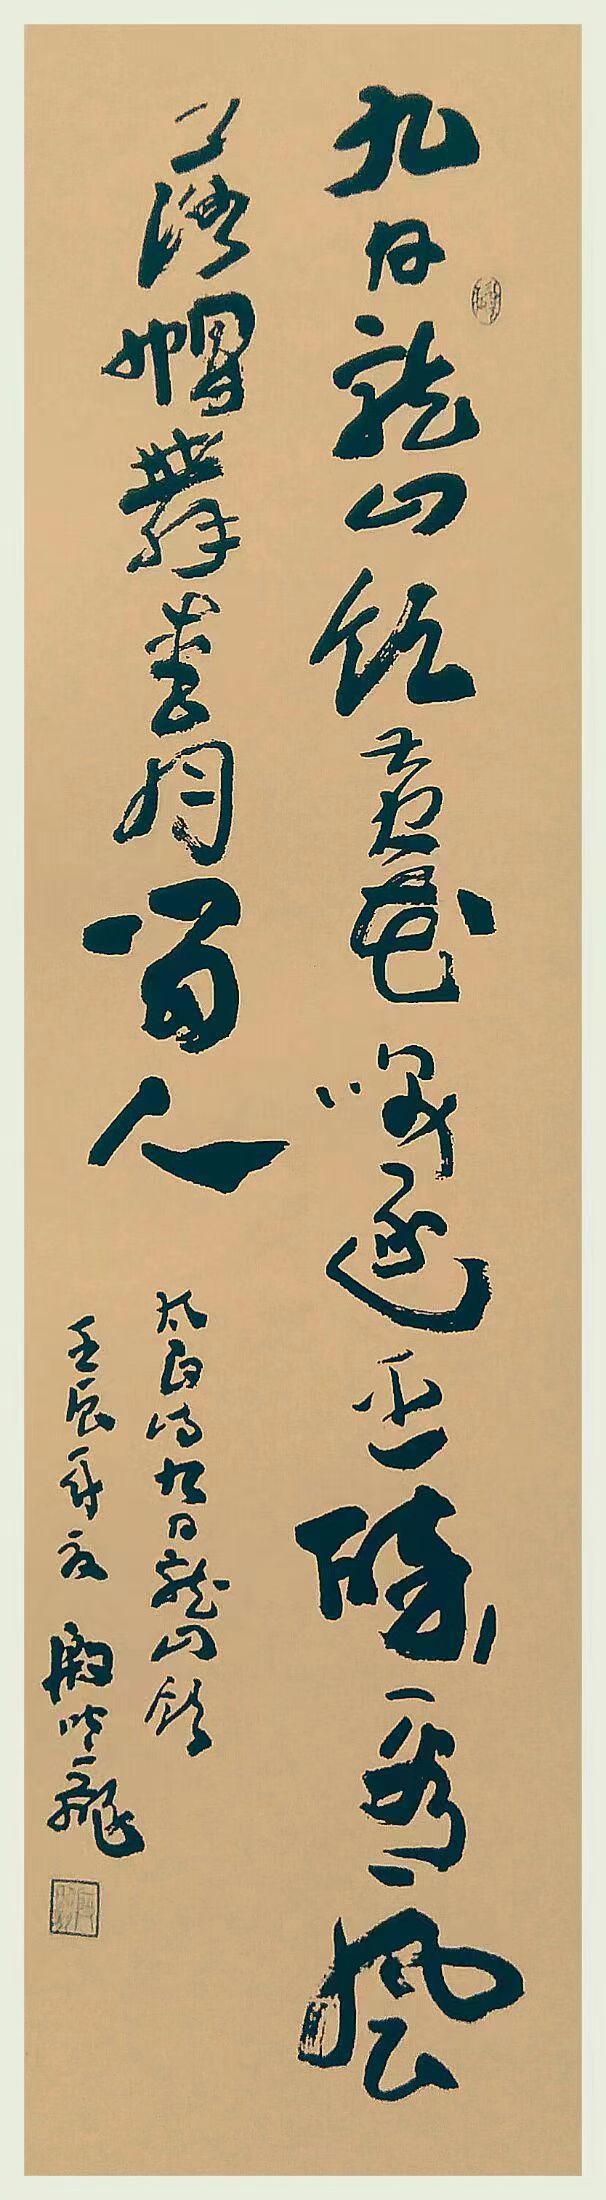 九日龍山飲黃花笑逐臣醉看風
落帽舞愛月留人
太白詩九日龍山飲
壬辰年